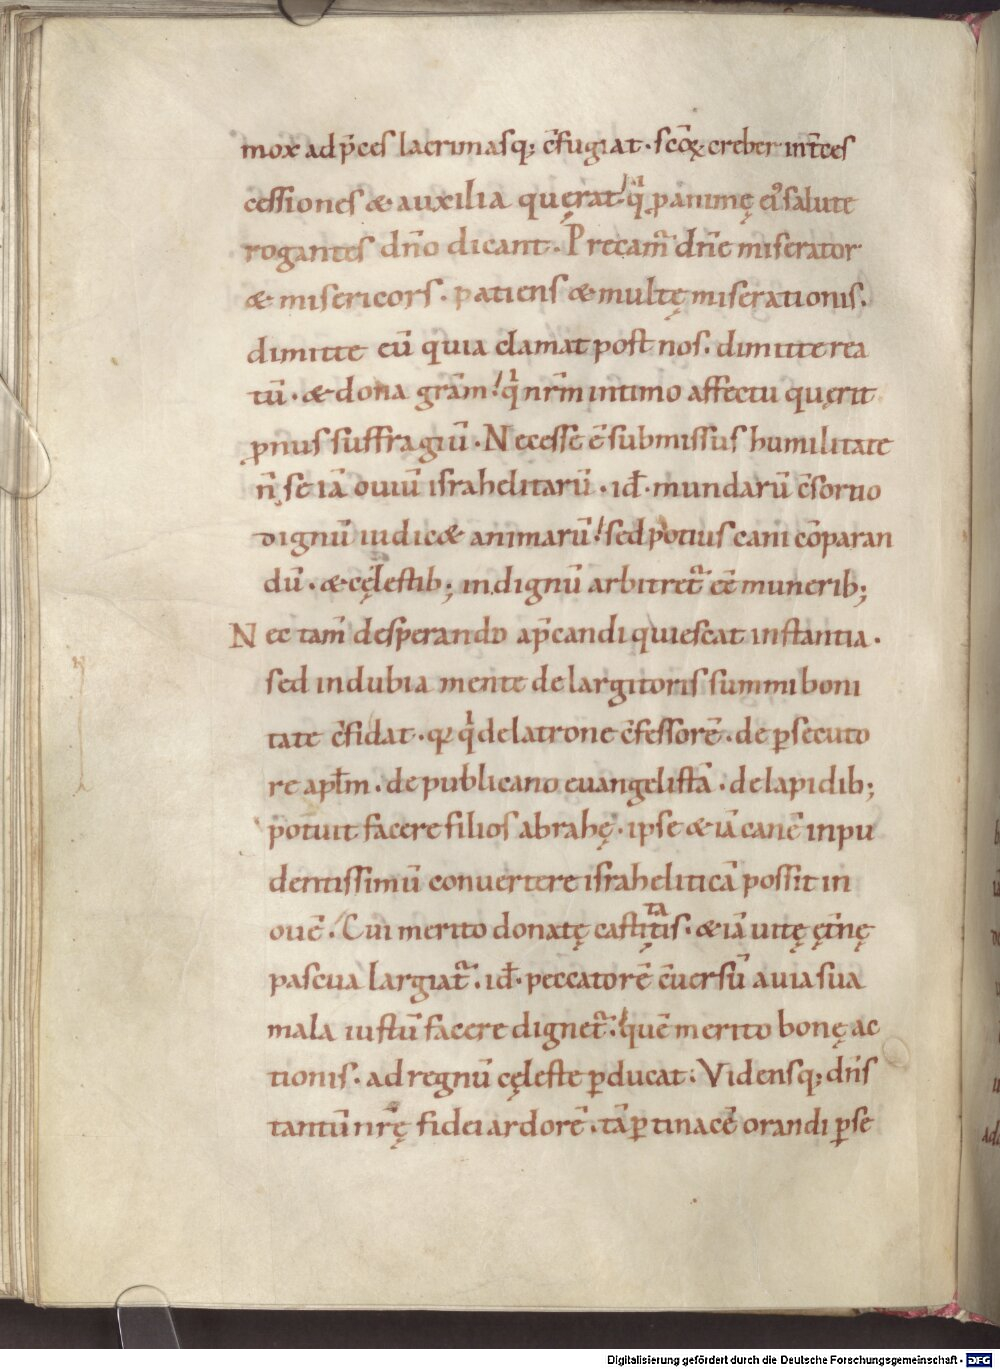 mox ad p̄ces lacrimasq; c̄fugiat. sc̄oꝝ creber int̄ces
cessiones & auxilia quęrat. q̇ ꝓ animę ei᾽ salute
rogantes dn̄o dicant. Precam̄ dn̄e miserator
& misericors. patiens & multę miserationis.
dimitte eū quia clamat post nos. dimitte rea
tū. & dona gr̄am. q̇ nr̄m intimo affectu quęrit
ꝓnus suffragiū. Necesse ē submissus humilitate
n̄ se iā ouiū israhelitarū. id÷ mundarū c̄sortio
dignū iudic& animarū. sed potius cani cōparan
dū. & cęlestib; indignū arbitret᾽ eē munerib;
Nec tam̄ desperando ap̄candi quiescat instantia.
sed indubia mente de largitoris summi boni
tate c̄fidat. q̇ de latrone c̄fessorē. de ꝑsecuto
re apl̄m. de publicano euangelistā. de lapidib;
potuit facere filios abrahę. ipse & iā canē inpu
dentissimū conuertere israheliticā possit in
ouē. Cui merito donatę castitatis. & iā uitę ęt̄nę
pascua largiat᾽. id÷ peccatorē c̄uersū a uia sua
mala iustū facere dignet᾽. quē merito bonę ac
tionis. ad regnū cęleste ꝑducat. Vidensq; dn̄s
tantū nr̄ę fidei ardorē. tā ꝑtinacē orandi ꝑse
Digitalisierung gefördert durch die Deutsche Forschungsgemeinschaft - DFG